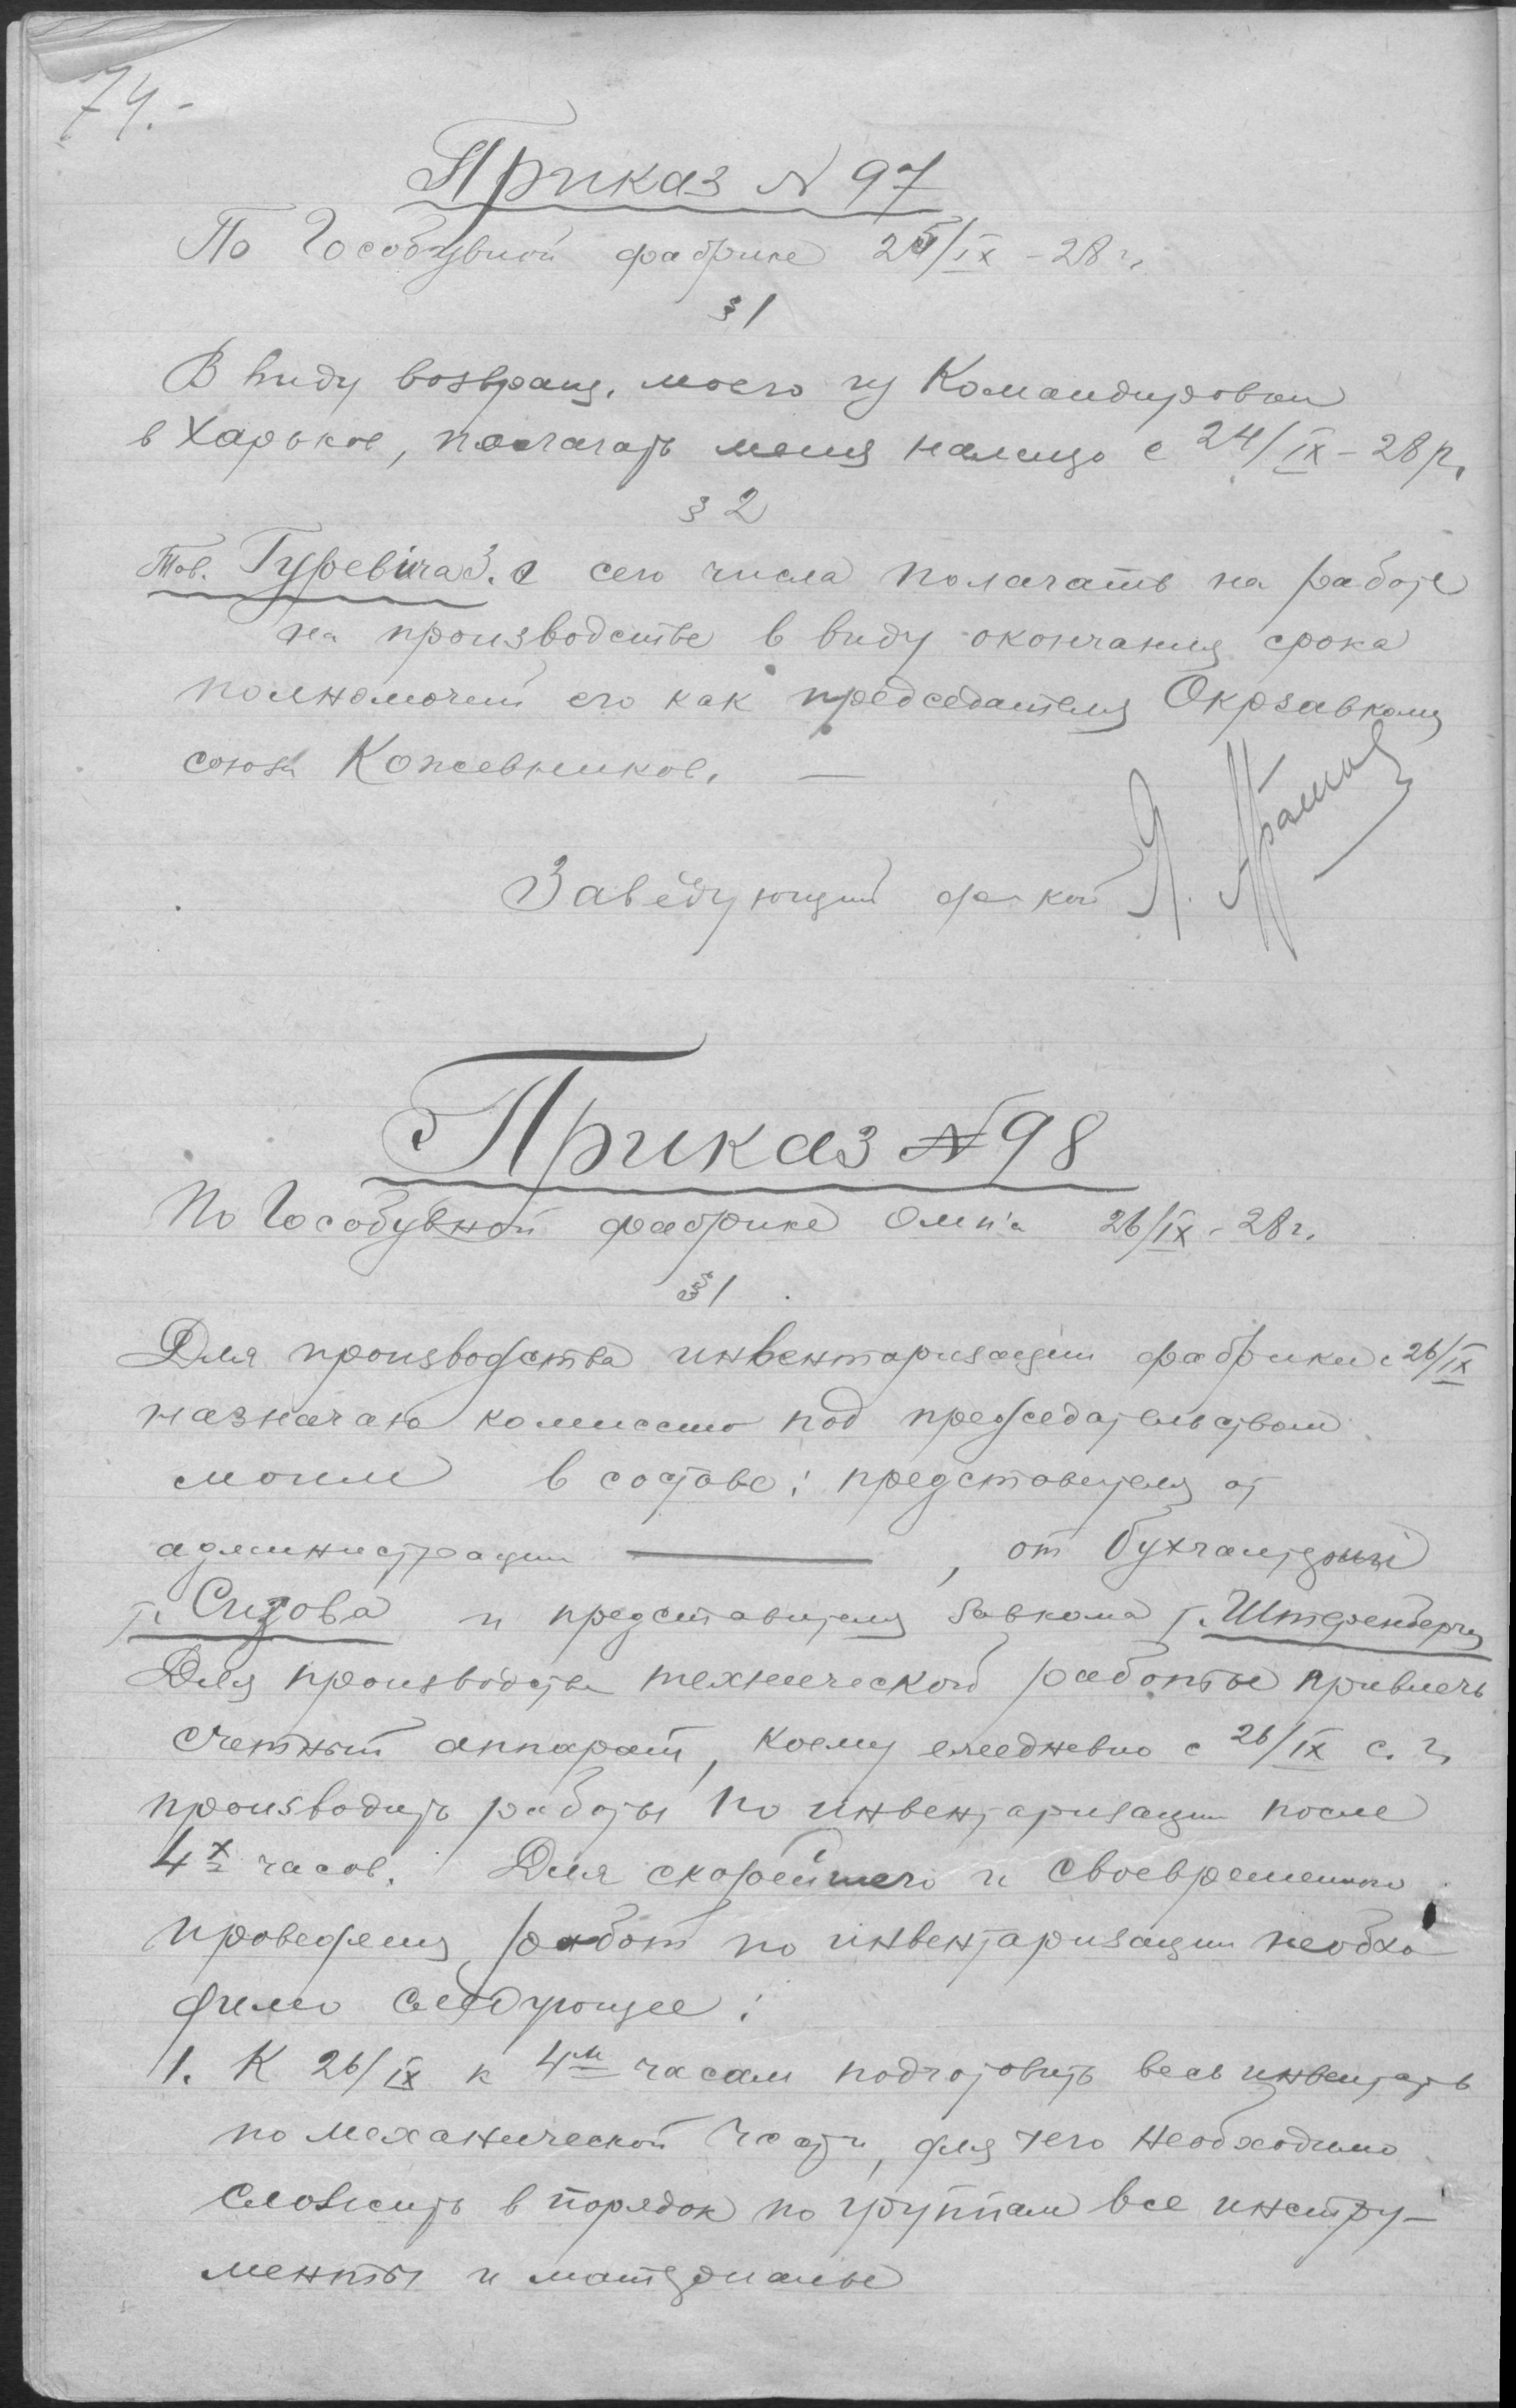 74.-
Приказ N 97
По Гособувной фабрике 25/IX - 28 г.
§ 1
В виду возвращ. моего из Командировки
в Харьков, полагать меня налицо с 24/IX - 28 р.
§ 2
Тов. Гуревича З. с сего числа полагать на работе
на производстве в виду окончания срока
полномочий его как председателя Окрзавкома
союза Кожевников. —
Заведующий ф-кой Я.
Приказ N 98
По Гособувной фабрике 26/IX - 28 г.
§ 1
Для производства инвентаризации фабрики с 26/IX
назначаю комиссию под председательством
моим в составе: представителя от
администрации ———, от бухгалтерии
т. Сизова и представителя завкома т. Штеренберга
Для производства технической работы привлечь
счетный аппарат, коему ежедневно с 26/IX с. г.
производить работы по инвентаризации после
4х часов. Для скорейшего и своевременного
проведения работ по инвентаризации необхо
димо следующее:
1. К 26/IX к 4м часам подготовить весь инвентарь
по механической части, для чего необходимо
сложить в порядок по группам все инстру-
менты и материалы